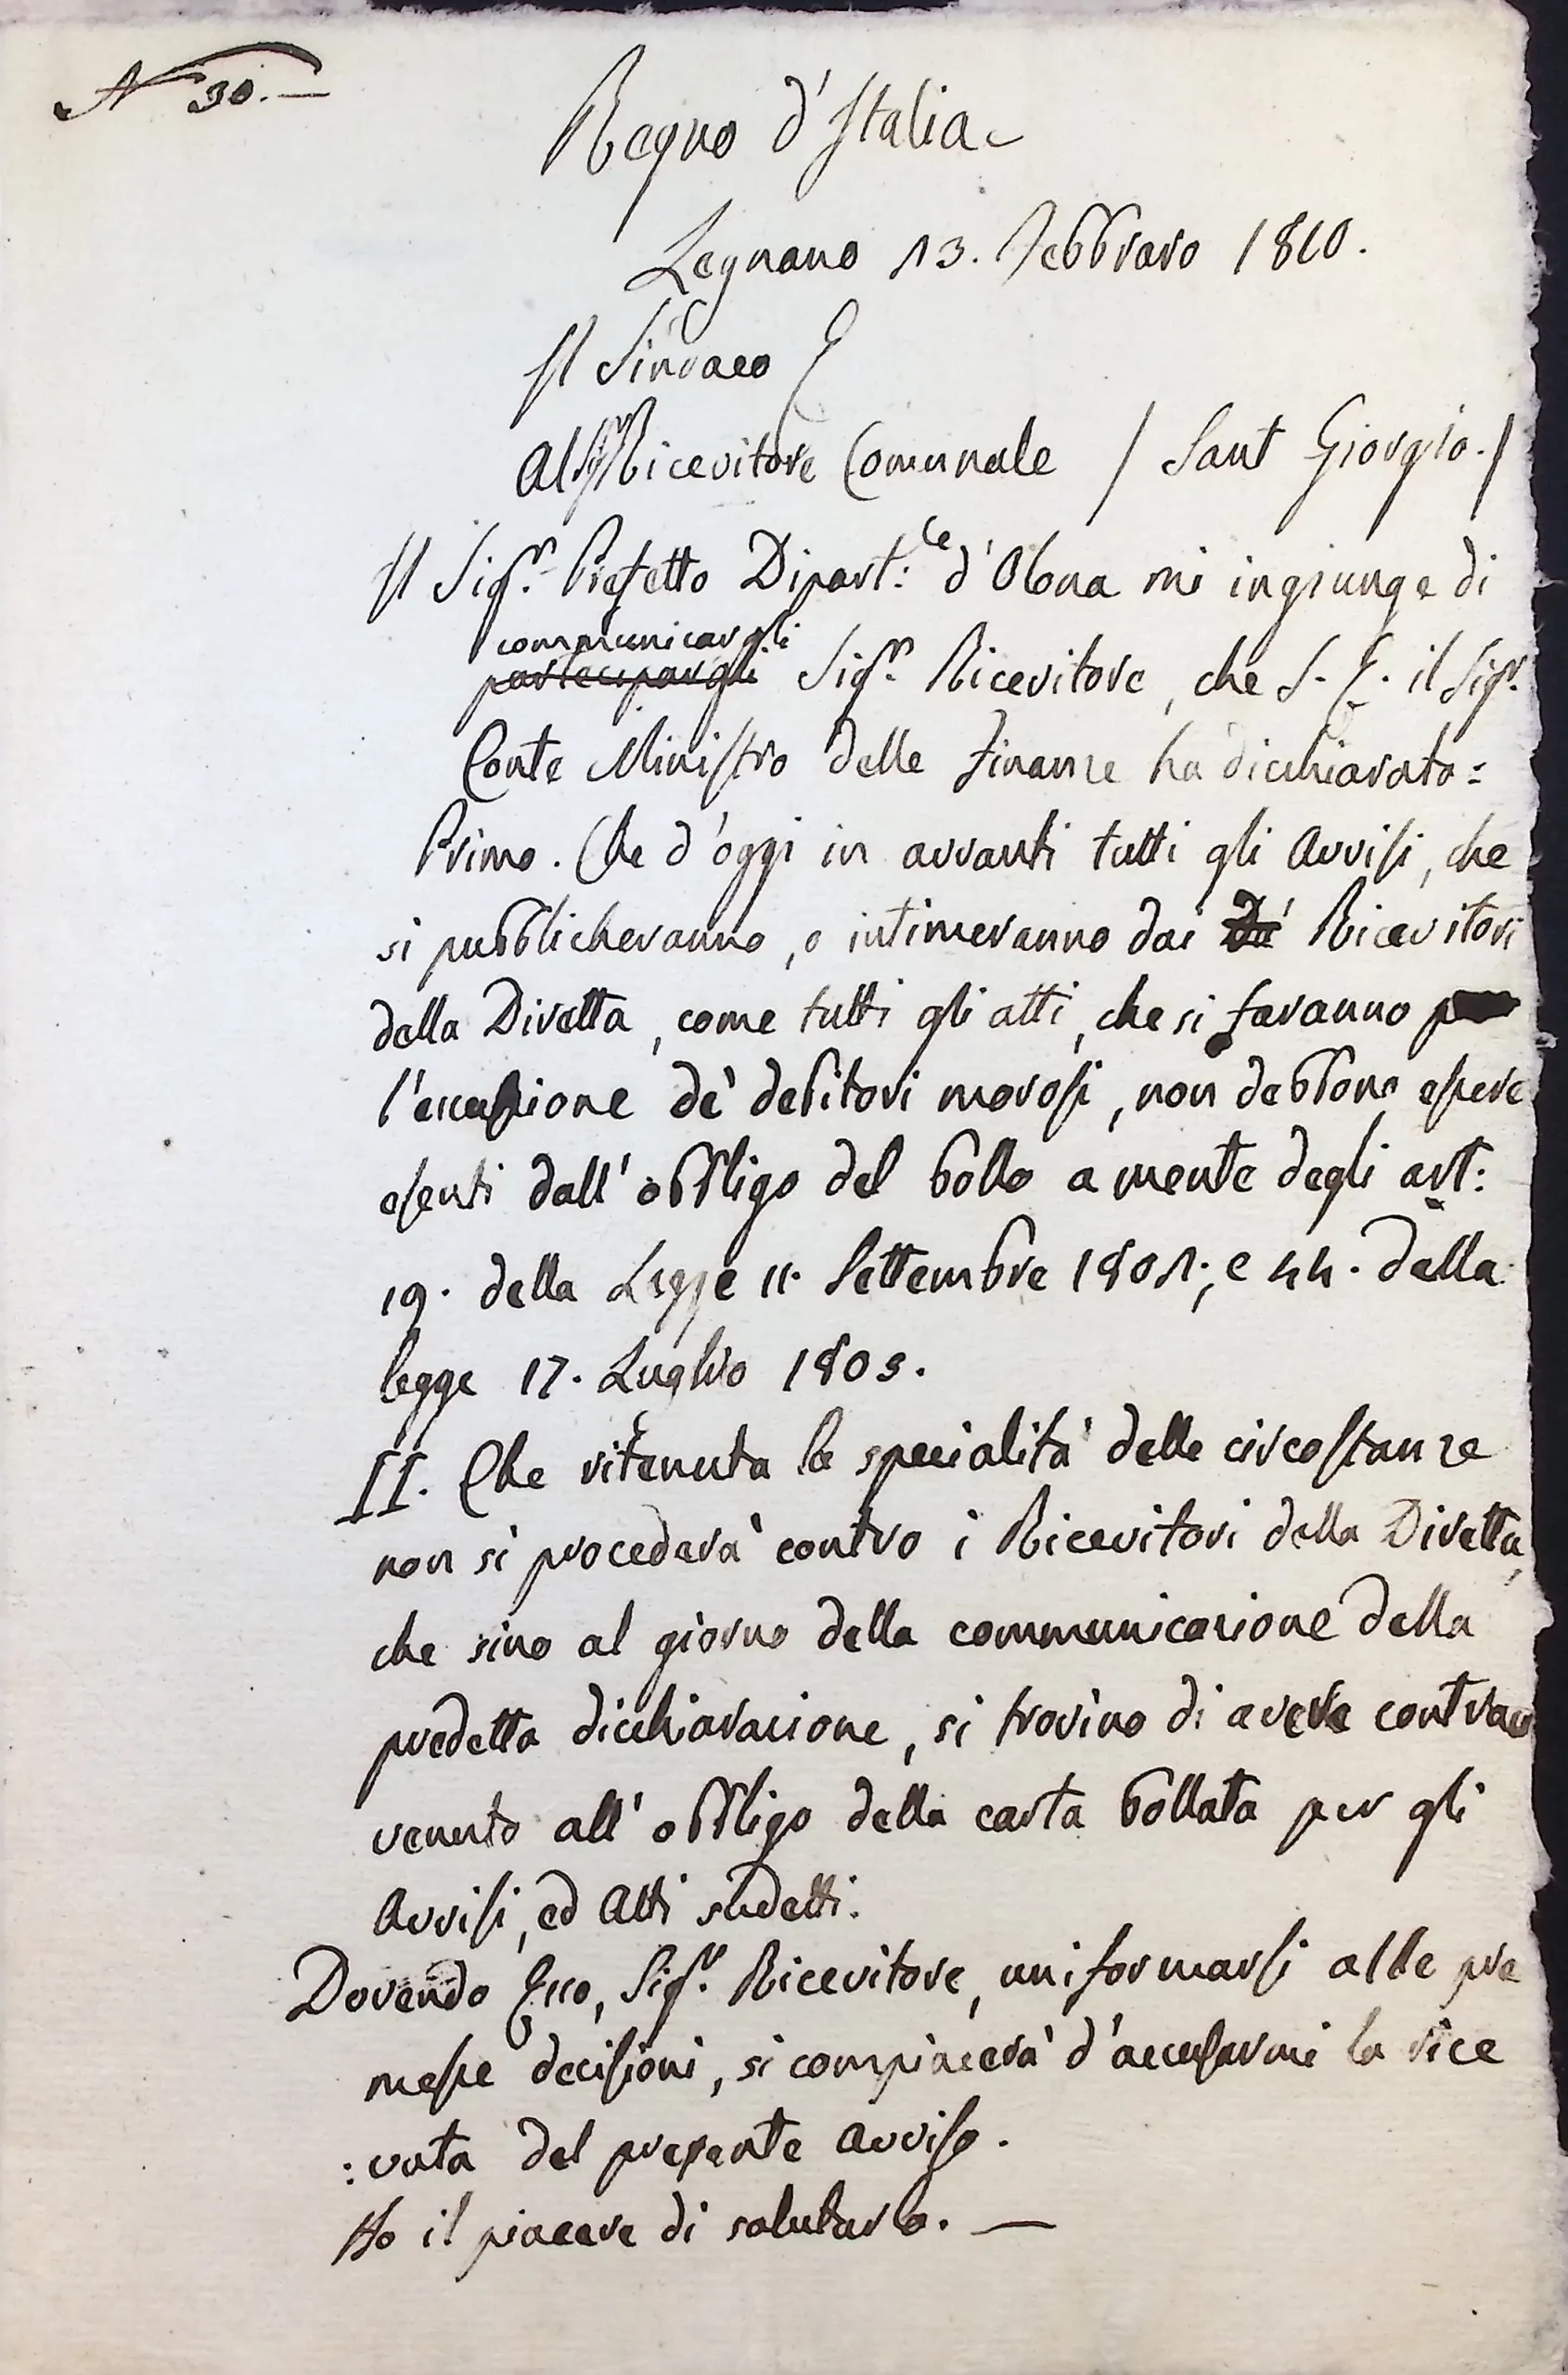 N 30. —
Regno d'Italia
Legnano 13. Febbraro 1810.
Il Sindaco
Al Sigr Ricevitore Comunale / Sant Giorgio. /
Il Sigr. Prefetto Dipart:le d'Olona mi ingiunge di
communicargli
partecipargli Sigr. Ricevitore, che S. E. il Sigr.
Conte Ministro delle Finanze ha dicchiarato =
Primo. Che d'oggi in avvanti tutti gli Avvisi, che
si pubblicheranno, o intimeranno dai De' Ricevitori
della Diretta, come tutti gli atti, che si faranno
l'escussione de' debitori morosi, non debbono essere
esenti dall'obbligo del bollo a mente degli art:
19. della Legge 11. Settembre 1801.; e 44. della
legge 17. Luglio 1805.
II. Che ritenuta la specialità delle circostanze
non si procederà contro i Ricevitori della Diretta,
che sino al giorno della communicazione della
predetta dicchiarazione, si trovino di avere contra
venuto all'obbligo della carta bollata per gli
Avvisi, ed Atti sudetti.
Dovendo Esso, Sigr. Ricevitore, uniformarsi alle pre
messe decisioni, si compiacerà d'accusarmi la rice
: vuta del presente Avviso.
Ho il piacere di salutarlo. —